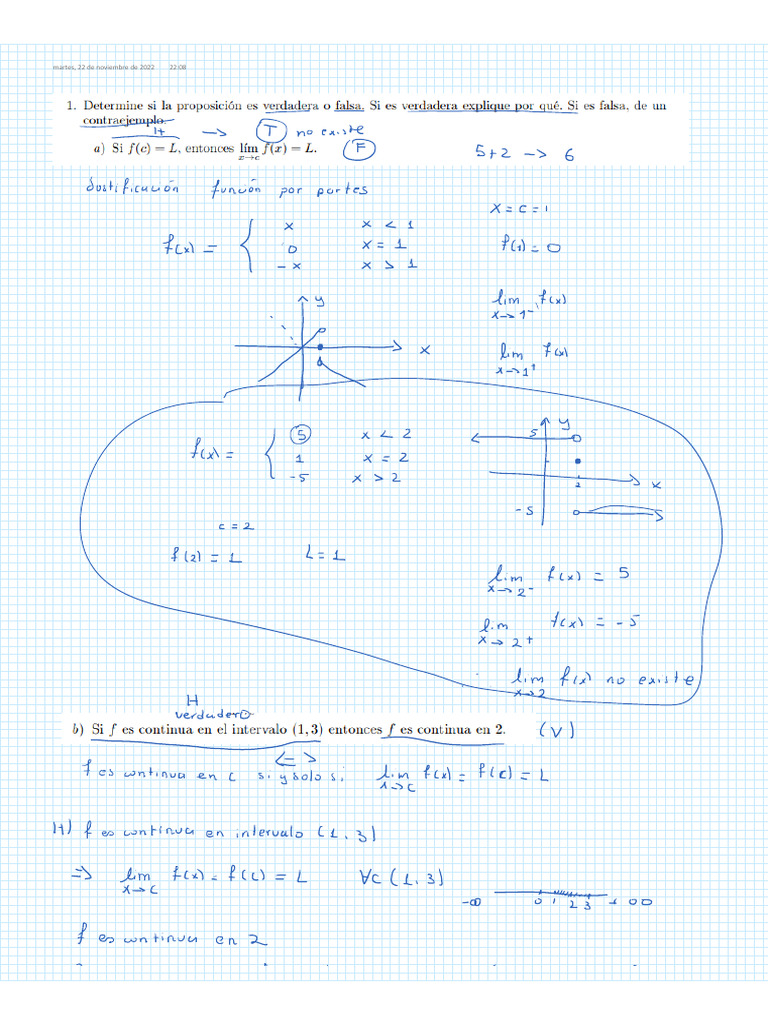 martes, 22 de noviembre de 2022 22:08
1. Determine si la proposición es verdadera o falsa. Si es verdadera explique por qué. Si es falsa, de un
contraejemplo.
H → T no existe
a) Si f(c) = L, entonces lím x→c f(x) = L. F
5+2 → 6
Justificación función por partes
x = c = 1
f(x) = { x x < 1
0 x = 1
-x x > 1
f(1) = 0
y
x
lim x→1⁻ f(x)
lim x→1⁺ f(x)
f(x) = { 5 x < 2
1 x = 2
-5 x > 2
5 y
2 x
-5
c = 2
f(2) = 1 L = 1
lim x→2⁻ f(x) = 5
lim x→2⁺ f(x) = -5
lim x→2 f(x) no existe
H
verdadero
b) Si f es continua en el intervalo (1, 3) entonces f es continua en 2. (V)
<=>
f es continua en c si y solo si lim x→c f(x) = f(c) = L
H) f es continua en intervalo (1, 3)
=> lim x→c f(x) = f(c) = L ∀c (1, 3)
-∞ 0 1 2 3 +∞
f es continua en 2